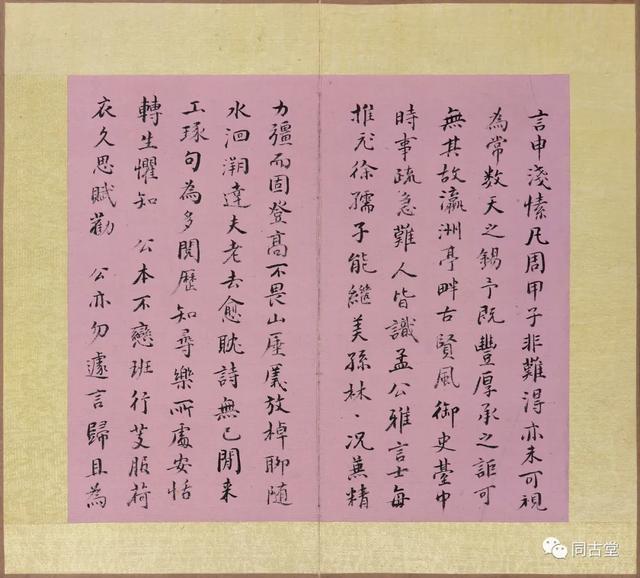 言申淺愫凡周甲子非難得亦未可視
為常数天之錫予既豐厚承之詎可
無其故瀛洲亭畔古賢風御史臺中
時事疏急難人皆識孟公雅言士每
推元徐孺子能繼美孫林、况兼精
力彊而固登高不畏山厓嶬放棹聊隨
水洄溯達夫老去愈耽詩無已閒来
工琢句為多閱歷知尋樂所處安恬
轉生懼知 公本不戀班行芰服荷
衣久思賦勸 公亦勿遽言歸且為
同古堂